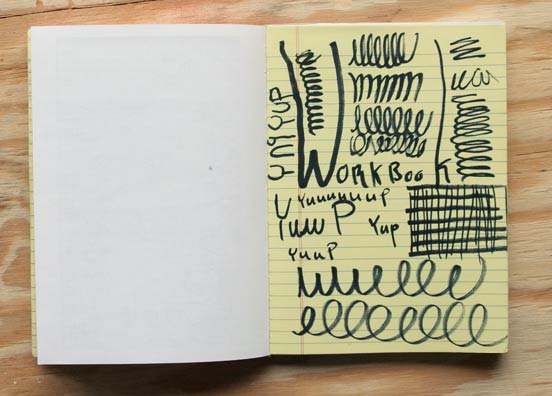 WORKBooK
Yuuuuuup
YuuuP
Yup
YuuP